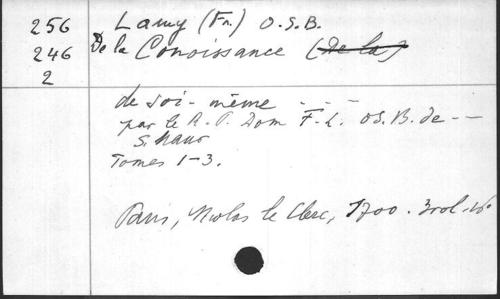 256 Lamy (Fr.) O.S.B.
246 De la Conoissance (De la)
2
de soi-même - - -
par le R. P. Dom F. L. O.S.B. de - -
S. Maur
Tomes 1-3.
Paris, Nicolas le Clerc, 1700. 3 vol.